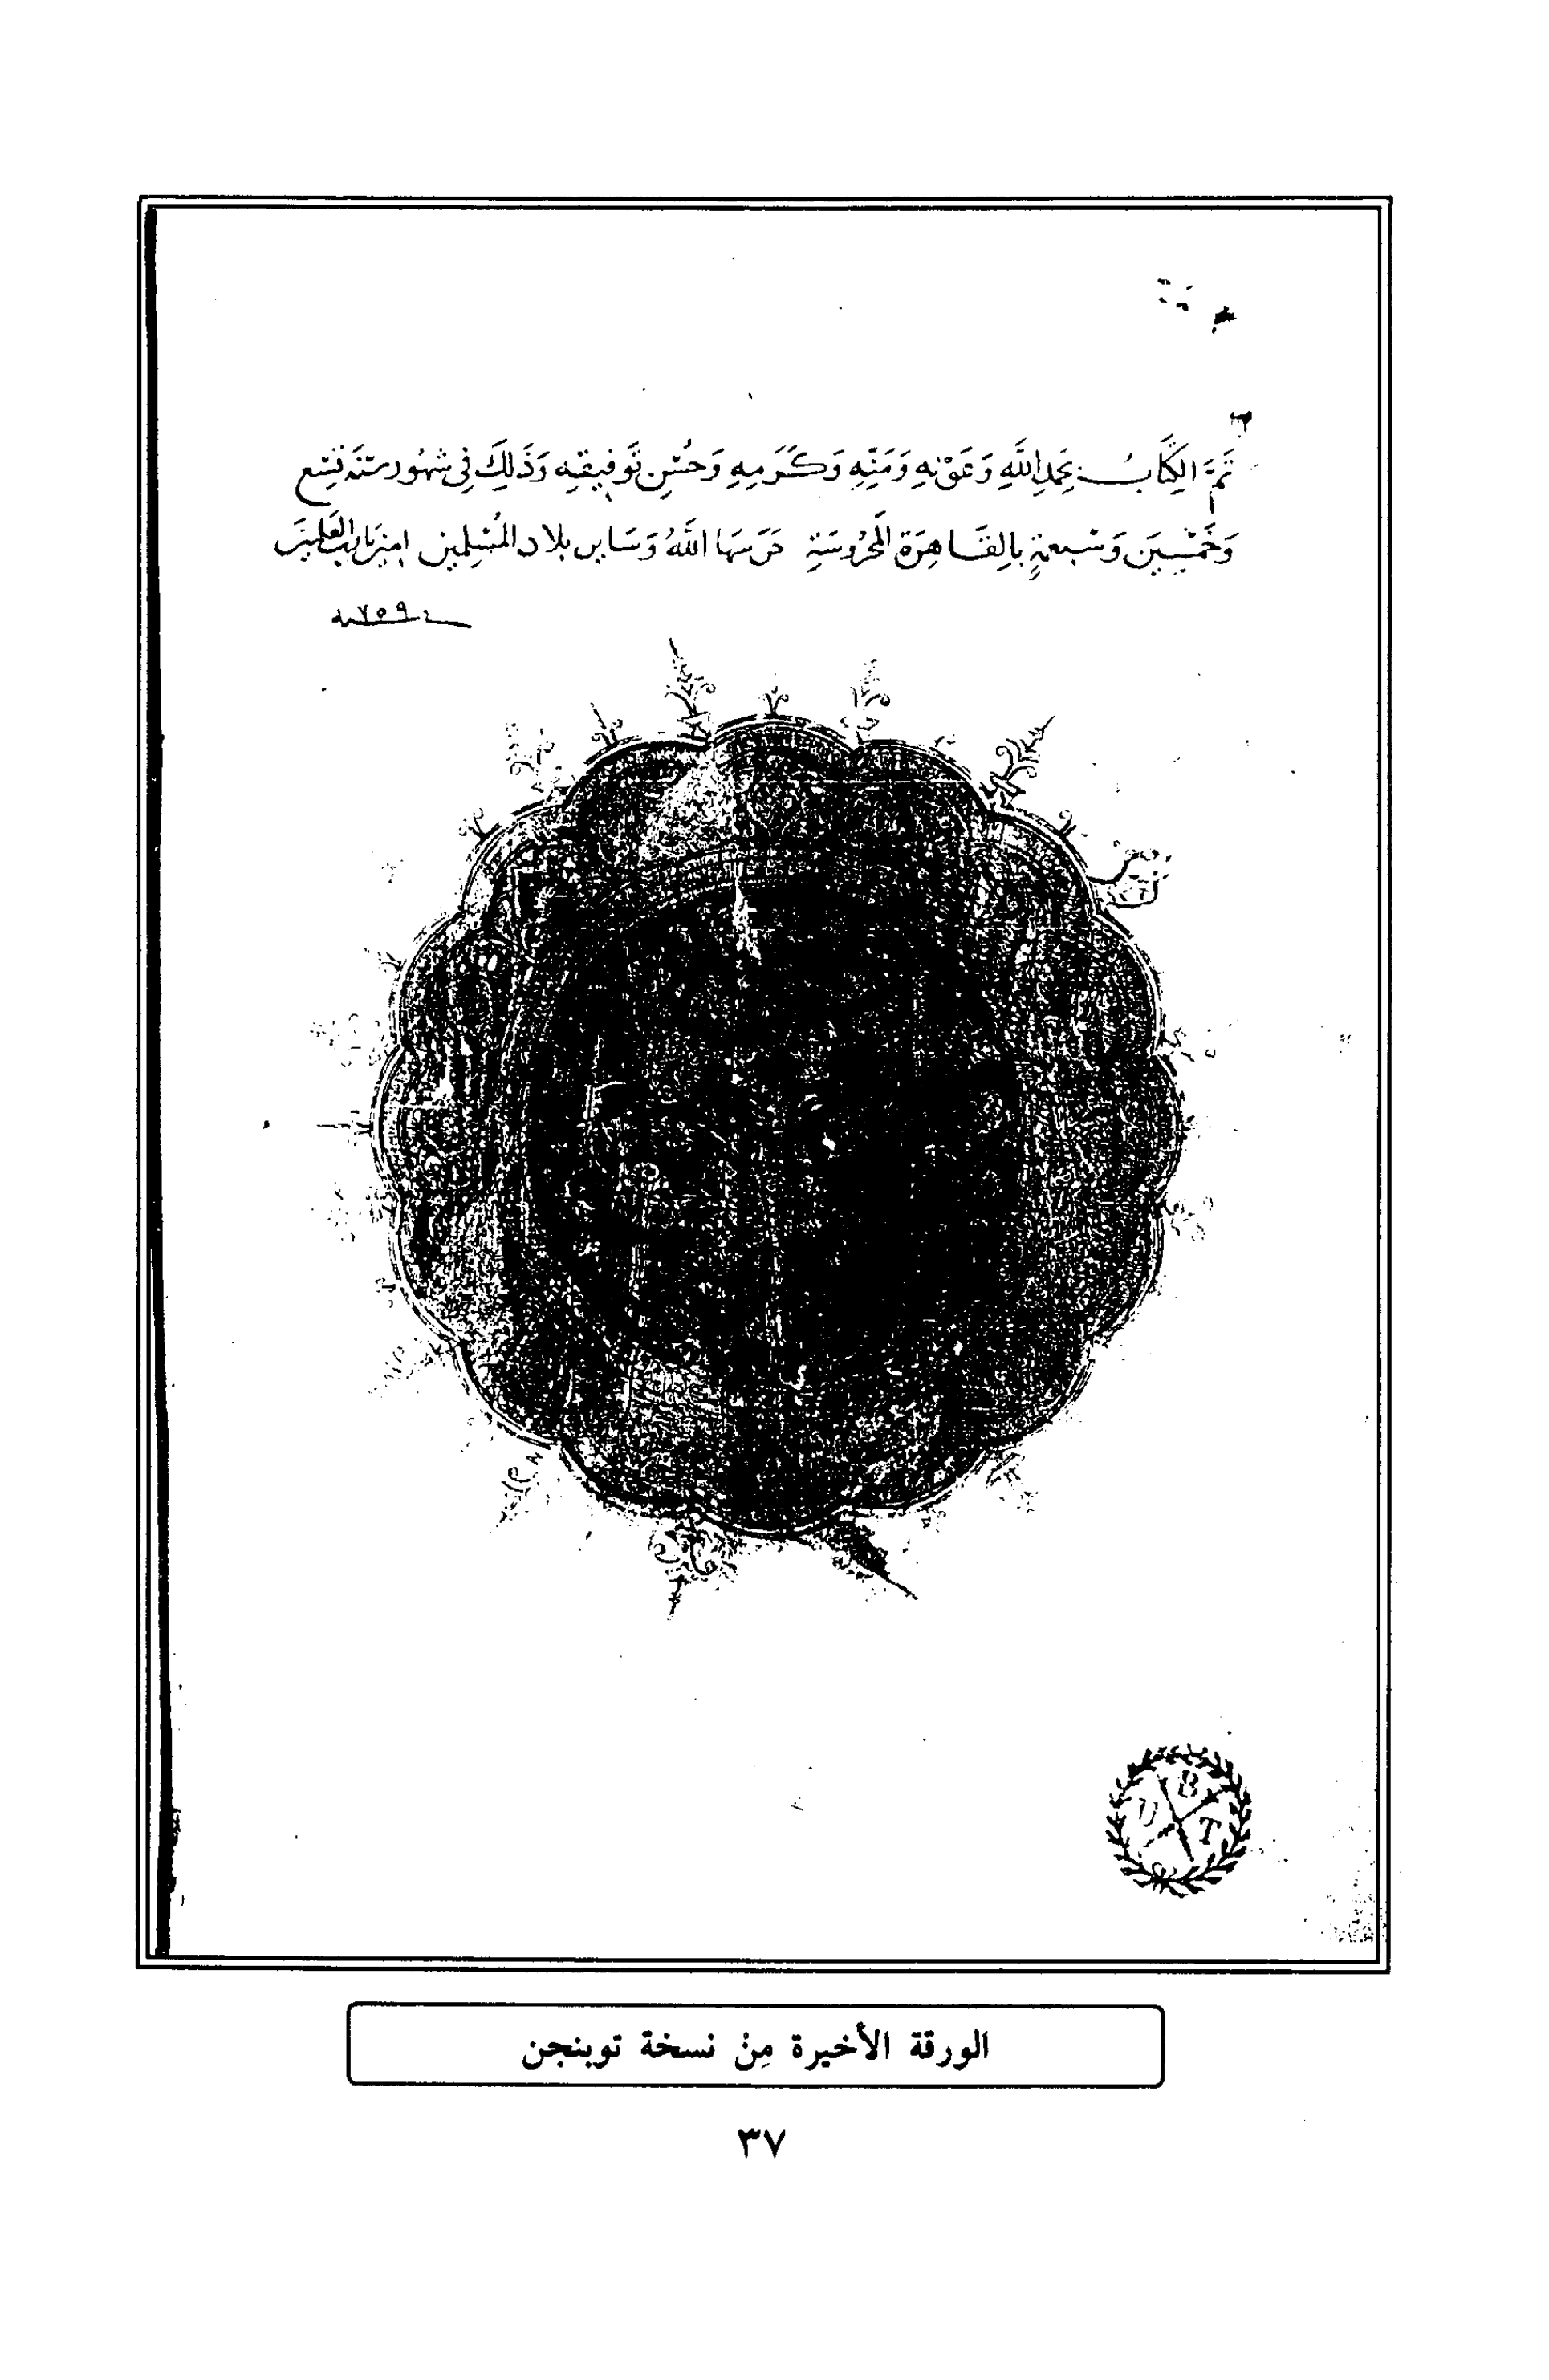 تَمَّ الكِتَابُ بِحَمدِ اللَّهِ وَعَوْنِهِ وَمَنِّهِ وَكَرَمِهِ وَحُسْنِ تَوفِيقِهِ وَذَلِكَ فِي شهُور سنَة تِسْع
وَخَمْسِينَ وَسَبعمئةٍ بالقَاهِرَة المَحْرُوسَةِ حَرَسَهَا اللَّهُ وَسَاير بلاد المُسْلِمين امين يَا رب العَلمينَ
سنه ٧٥٩
U B T
الورقة الأخيرة مِنْ نسخة توبنجن
٣٧